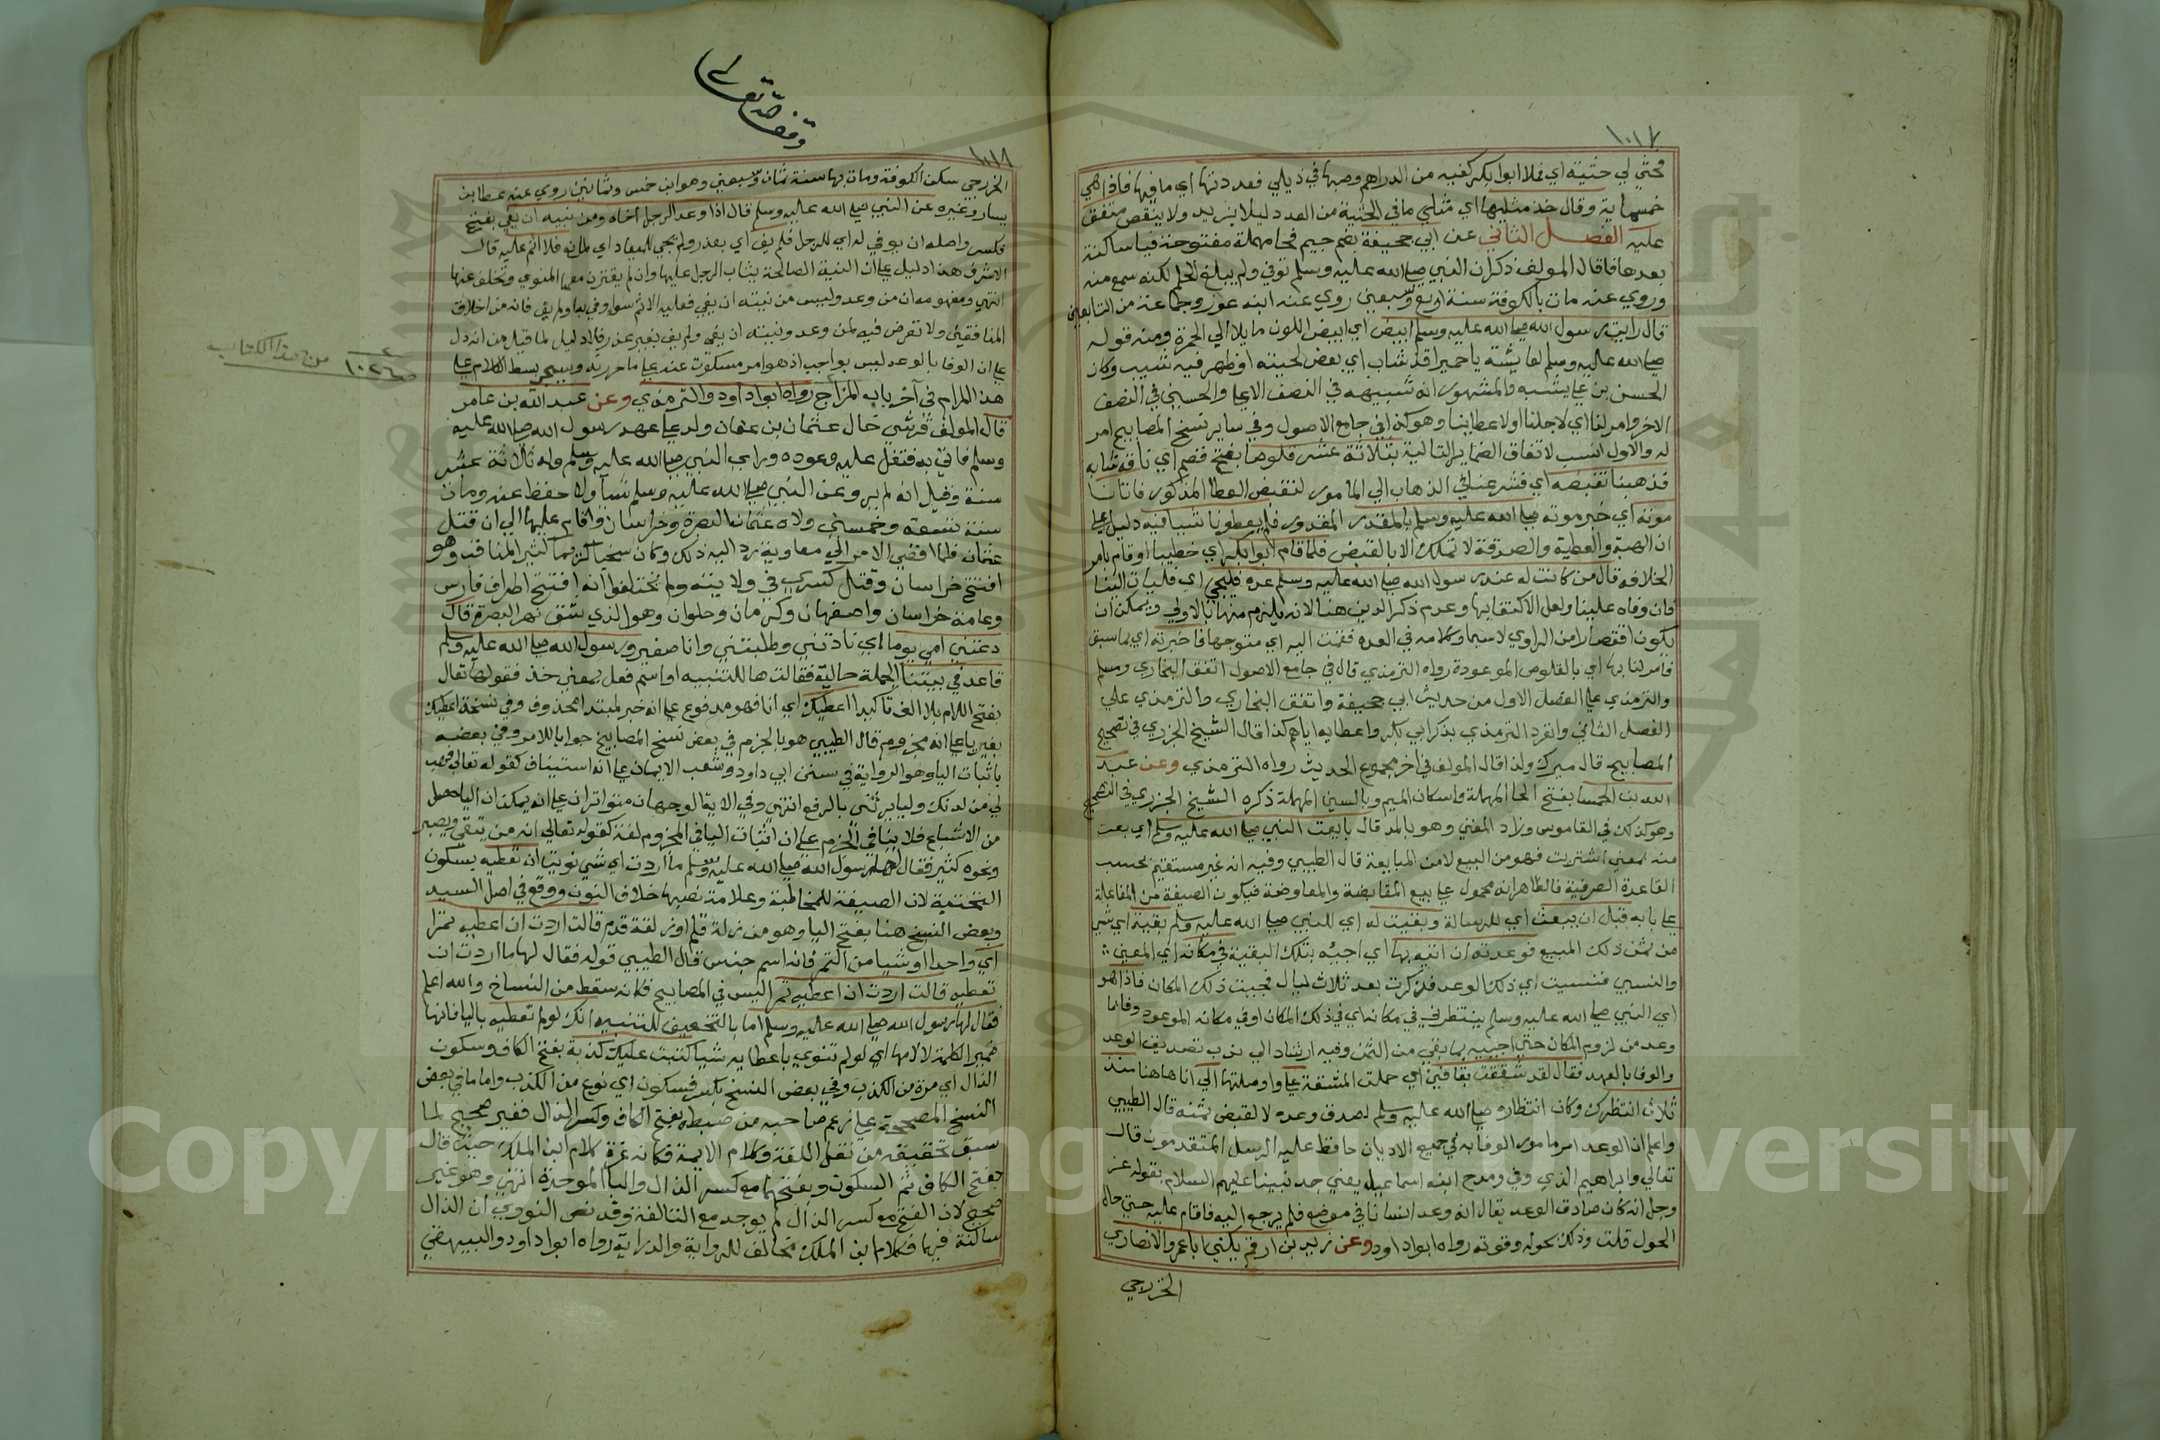 ١٠١٧
فحثى لي حثية اي فملا ابوا بكر كفيه من الدراهم وصبها في ذيلي فعددتها اي ما فيها فاذا هي
خمسماية وقال خذ مثليها اي مثلي ما في الحثية من العدد ليلا يزيد ولا ينقص متفق
عليه الفصل الثاني عن ابي جحيفة بضم جيم فحا مهملة مفتوحة فيا ساكنة
بعدها فا قال المولف ذكر ان النبي صلى الله عليه وسلم توفي ولم يبلغ الحلم لكنه سمع منه
وروي عنه مات بالكوفة سنة اربع وسبعين روي عنه ابنه عون وجماعة من التابعين
قال رايت رسول الله صلى الله عليه وسلم ابيض اي ابيض اللون مايلا الي الحمرة ومنه قوله
صلى الله عليه وسلم لعايشة يا حميرا قد شاب اي بعض لحيته او ظهر فيه شيب وكان
الحسن بن علي يشبهه والمشهور انه شبيهه في النصف الاعلى والحسين في النصف
الاخر وامر لنا اي لاجلنا اولا عطاينا وهو كذا في جامع الاصول وفي ساير نسخ المصابيح امر
له والاول انسب لاتفاق الضماير التالية بثلاثة عشر قلوصا بفتح فضم اي ناقة شابه
فذهبنا نقبضه اي فشرعنا في الذهاب الي المامور لنقبض العطا المذكور فاتانا
موته اي خبر موته صلى الله عليه وسلم بالمقدر المقدور فلم يعطونا شيا فيه دليل علي
ان الهبة والعطية والصدقة لا تملك الا بالقبض فلما قام ابوا بكر اي خطيبا او قام بامر
الخلافة قال من كانت له عند رسول الله صلى الله عليه وسلم عدة فليجي اي فليات الينا
فان وفاه علينا ولعل الاكتفا بها وعدم ذكر الدين هنا لانه يلزم منها بالاولي ويمكن ان
يكون اقتصارا من الراوي لاسيما وكلامه في العدة فقمت اليه اي متوجها فاخبرته اي بما سبق
فامر لنا بها اي بالقلوص الموعودة رواه الترمذي قال في جامع الاصول اتفق البخاري ومسلم
والترمذي علي الفصل الاول من حديث ابي جحيفة واتفق البخاري والترمذي علي
الفصل الثاني وانفرد الترمذي بذكر ابي بكر واعطايه اياهم كذا قال الشيخ الجزري في تصحيح
المصابيح قال ميرك ولذا قال المولف في اخر مجموع الحديث رواه الترمذي وعن عبد
الله بن الحمسا بفتح الحا المهملة واسكان الميم وبالسين المهملة ذكره الشيخ الجزري في التصحيح
وهو كذلك في القاموس وزاد المغني وهو بالمد قال بايعت النبي صلى الله عليه وسلم اي بعت
منه بمعني اشتريت فهو من البيع لا من المبايعة قال الطيبي وفيه انه غير مستقيم بحسب
القاعدة الصرفية فالظاهر انه محمول علي بيع المقايضة والمعاوضة فيكون الصيغة من المفاعلة
علي بابه قبل ان يبعث اي للرسالة وبقيت له اي للنبي صلى الله عليه وسلم بقية اي شي
من ثمن ذلك المبيع فوعدته ان اتيه بها اي اجيه بتلك البقية في مكانه اي المعين
والنسبي فنسيت اي ذلك الوعد فذكرت بعد ثلاث ليال فجيت ذلك المكان فاذا هو
اي النبي صلى الله عليه وسلم ينتظرني في مكانه اي في ذلك المكان او في مكانه الموعود وفا بما
وعد من لزوم المكان حتي اجييه بما بقي من الثمن وفيه ارشاد الي ندب تصديق الوعد
والوفا بالعهد فقال لقد شققت بقافين اي حملت المشقة علي واوصلتها الي انا هاهنا منذ
ثلاث انتظرك وكان انتظاره صلى الله عليه وسلم لصدق وعده لا لقبض ثمنه قال الطيبي
واعلم ان الوعد امر مامور الوفا به في جميع الاديان حافظ عليه الرسل المتقدمون قال
تعالي وابراهيم الذي وفي ومدح ابنه اسماعيل يعني جد نبينا عليهم السلام بقوله عز
وجل انه كان صادق الوعد يقال انه وعد انسانا في موضع فلم يرجع اليه فاقام عليه حتي حال
الحول قلت وذلك بحوله وقوته رواه ابو داود وعن زيد بن ارقم يكني ابا عمر والانصاري
الخزرجي
وقف لله تعالى
١٠١٨
الخزرجي سكن الكوفة ومات بها سنة ثمان وسبعين وهو ابن خمس وثمانين روي عنه عطا بن
يسار وغيره عن النبي صلى الله عليه وسلم قال اذا وعد الرجل اخاه ومن نيته ان يفي بفتح
فكسر واصله ان يوفي له اي للرجل فلم يف اي بعذر ولم يجي للميعاد اي لمانع فلا اثم عليه قال
الاشرف هذا دليل علي ان النية الصالحة يثاب الرجل عليها وان لم يقترن معها المنوي وتخلف عنها
انتهي ومفهومه ان من وعد وليس من نيته ان يفي فعليه الاثم سوا وفي به او لم يف فانه من اخلاق
المنافقين ولا تعرض فيه لمن وعد ونيته ان يفي ولم يف بغير عذر فلا دليل لما قيل من انه دل
علي ان الوفا بالوعد ليس بواجب اذ هو امر مسكوت عنه علي ما حررته وسيجي بسط الكلام علي
هذا المرام في آخر باب المزاح رواه ابوا داود والترمذي وعن عبد الله بن عامر
قال المولف قرشي خال عثمان بن عفان ولد علي عهد رسول الله صلى الله عليه
وسلم فاتي به فتفل عليه وعوذه وراى النبي صلى الله عليه وسلم وله ثلاثة عشر
سنة وقيل انه لم يرو عن النبي صلى الله عليه وسلم شيا ولا حفظ عنه ومات
سنة تسعة وخمسين ولاه عثمان البصرة وخراسان واقام عليها الي ان قتل
عثمان فلما افضي الامر الي معاوية رد اليه ذلك وكان سخيا كريما كثير المناقب وهو
افتتح خراسان وقتل كسري في ولايته ولم يختلفوا انه افتتح اطراف فارس
وعامة خراسان واصفهان وكرمان وحلوان وهو الذي شق نهر البصرة قال
دعتني امي يوما اي نادتني وطلبتني وانا صغير ورسول الله صلى الله عليه وسلم
قاعد في بيتنا الجملة حالية فقالت ها للتنبيه او اسم فعل بمعني خذ فقولها تعال
بفتح اللام بلا الف تاكيدا اعطيك اي انا فهو مرفوع علي انه خبر لمبتدا محذوف وفي نسخة اعطك
بغير يا علي انه مجزوم قال الطيبي هو بالجزم في بعض نسخ المصابيح جوابا للامر وفي بعضه
باثبات اليا وهو الرواية في سنن ابي داود وشعب الايمان علي انه استيناف كقوله تعالي فهب
لي من لدنك وليا يرثني بالرفع انتهي وفي الاية الوجهان متواتران علي انه يمكن ان اليا حصل
من الاشباع فلا ينافي الجزم علي ان اثبات اليا في المجزوم لغة كقوله تعالي انه من يتقي ويصبر
ونحوه كثير فقال لها رسول الله صلى الله عليه وسلم ما اردت اي شي نويت ان تعطيه بسكون
التحتية لان الصيغة للمخاطبة وعلامة نصبها حذف النون ووقع في اصل السيد
وبعض النسخ هنا بفتح اليا وهو من زلة قلم او زلقة قدم قالت اردت ان اعطيه تمرا
اي واحدا او شيا من التمر فانه اسم جنس قال الطيبي قوله فقال لها ما اردت ان
تعطيه قالت اردت ان اعطيه تمرا ليس في المصابيح فكانه سقط من النساخ والله اعلم
فقال لها رسول الله صلى الله عليه وسلم اما بالتخفيف للتنبيه انك لو لم تعطيه باليا فانها
ضمير الكلمة لا لامها اي لو لم تنوي باعطايه شيا كتبت عليك كذبة بفتح الكاف وسكون
الذال اي مرة من الكذب وفي بعض النسخ بكسر فسكون اي نوع من الكذب واما ما في بعض
النسخ المصححة علي زعم صاحبه من ضبطه بفتح الكاف وكسر الذال فغير صحيح لما
سبق تحقيقه من نقل اللغة وكلام الايمة فكانه غره كلام ابن الملك حيث قال
بفتح الكاف ثم السكون وبفتحها مع كسر الذال واليا الموحدة انتهي وهو غير
صحيح لان الفتح مع كسر الذال لم يوجد مع التا لغة وقد نص النووي ان الذال
ساكنة فيها فكلام ابن الملك مخالف للرواية والدراية رواه ابوا داود والبيهقي
١٠٢٦ من هذا الكتاب
Copyright © King Saud University